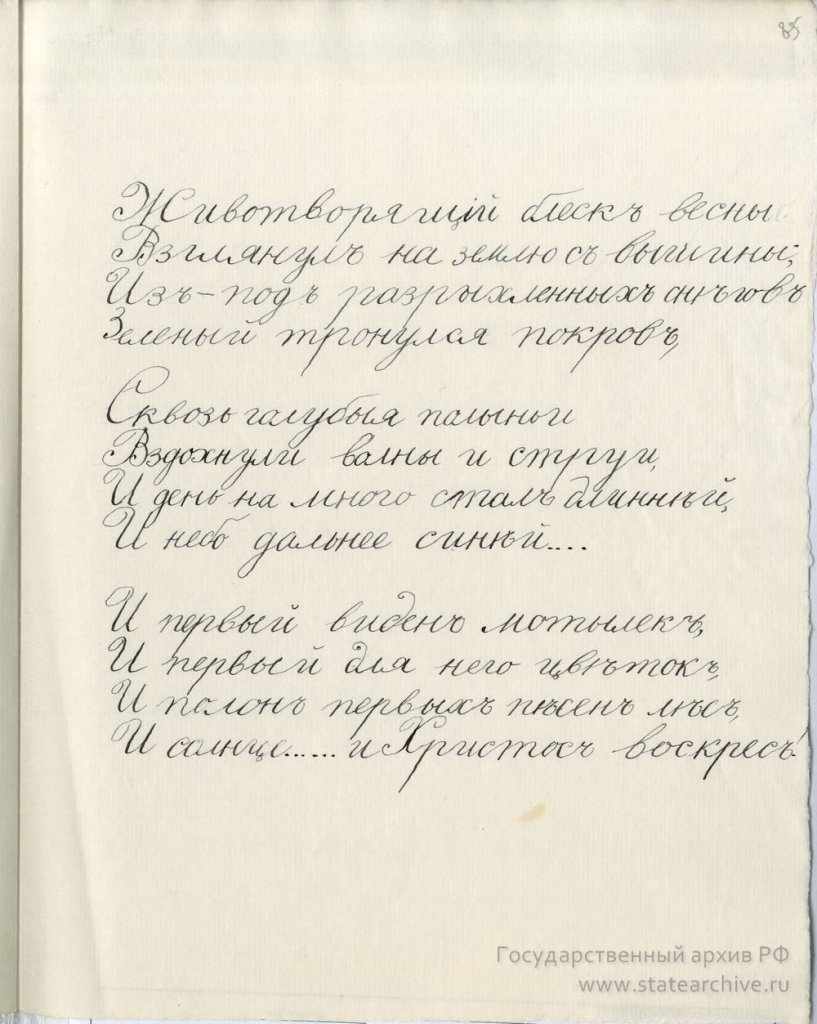 85
Животворящій блескъ весны
Взглянулъ на землю съ вышины;
Изъ-подъ разрыхленныхъ снѣговъ
Зеленый тронулся покровъ,
Сквозь голубыя полыньи
Вздохнули волны и струи,
И день на много сталъ длиннѣй,
И небо дальнее синѣй....
И первый виденъ мотылекъ,
И первый для него цвѣтокъ,
И полонъ первыхъ пѣсенъ лѣсъ,
И солнце...... и Христосъ воскресъ!
Государственный архив РФ
www.statearchive.ru